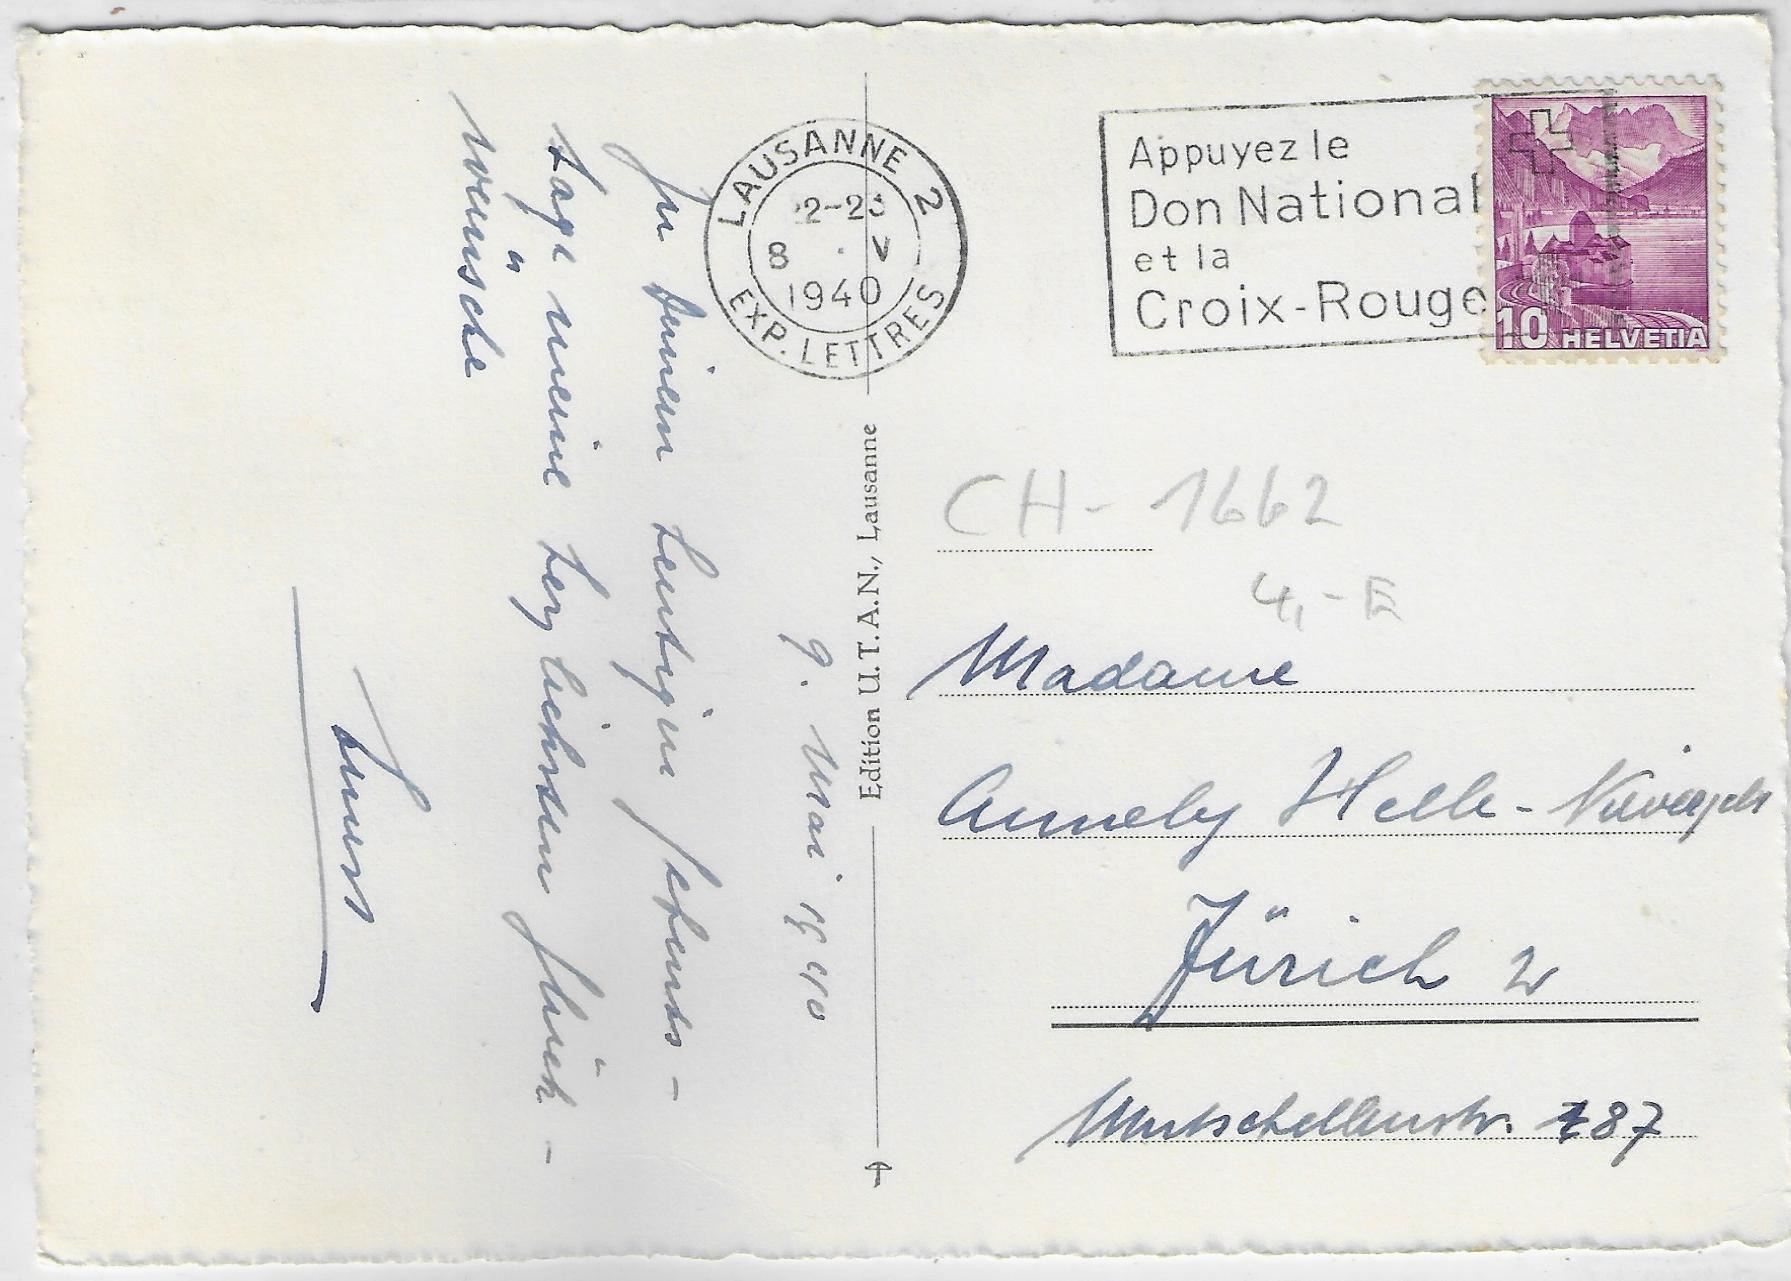 9. Mai 1940
Zu Deinem heutigen Geburts-
tage meine herzlichsten Glück-
wünsche
LAUSANNE 2
22-23
8 . V
1940
EXP. LETTRES
Appuyez le
Don National
et la
Croix-Rouge
10 HELVETIA
Edition U.T.A.N., Lausanne
CH-1662
4,-E
Madame
Annely Helle-
Zürich 2
Mutschellenstr. 187